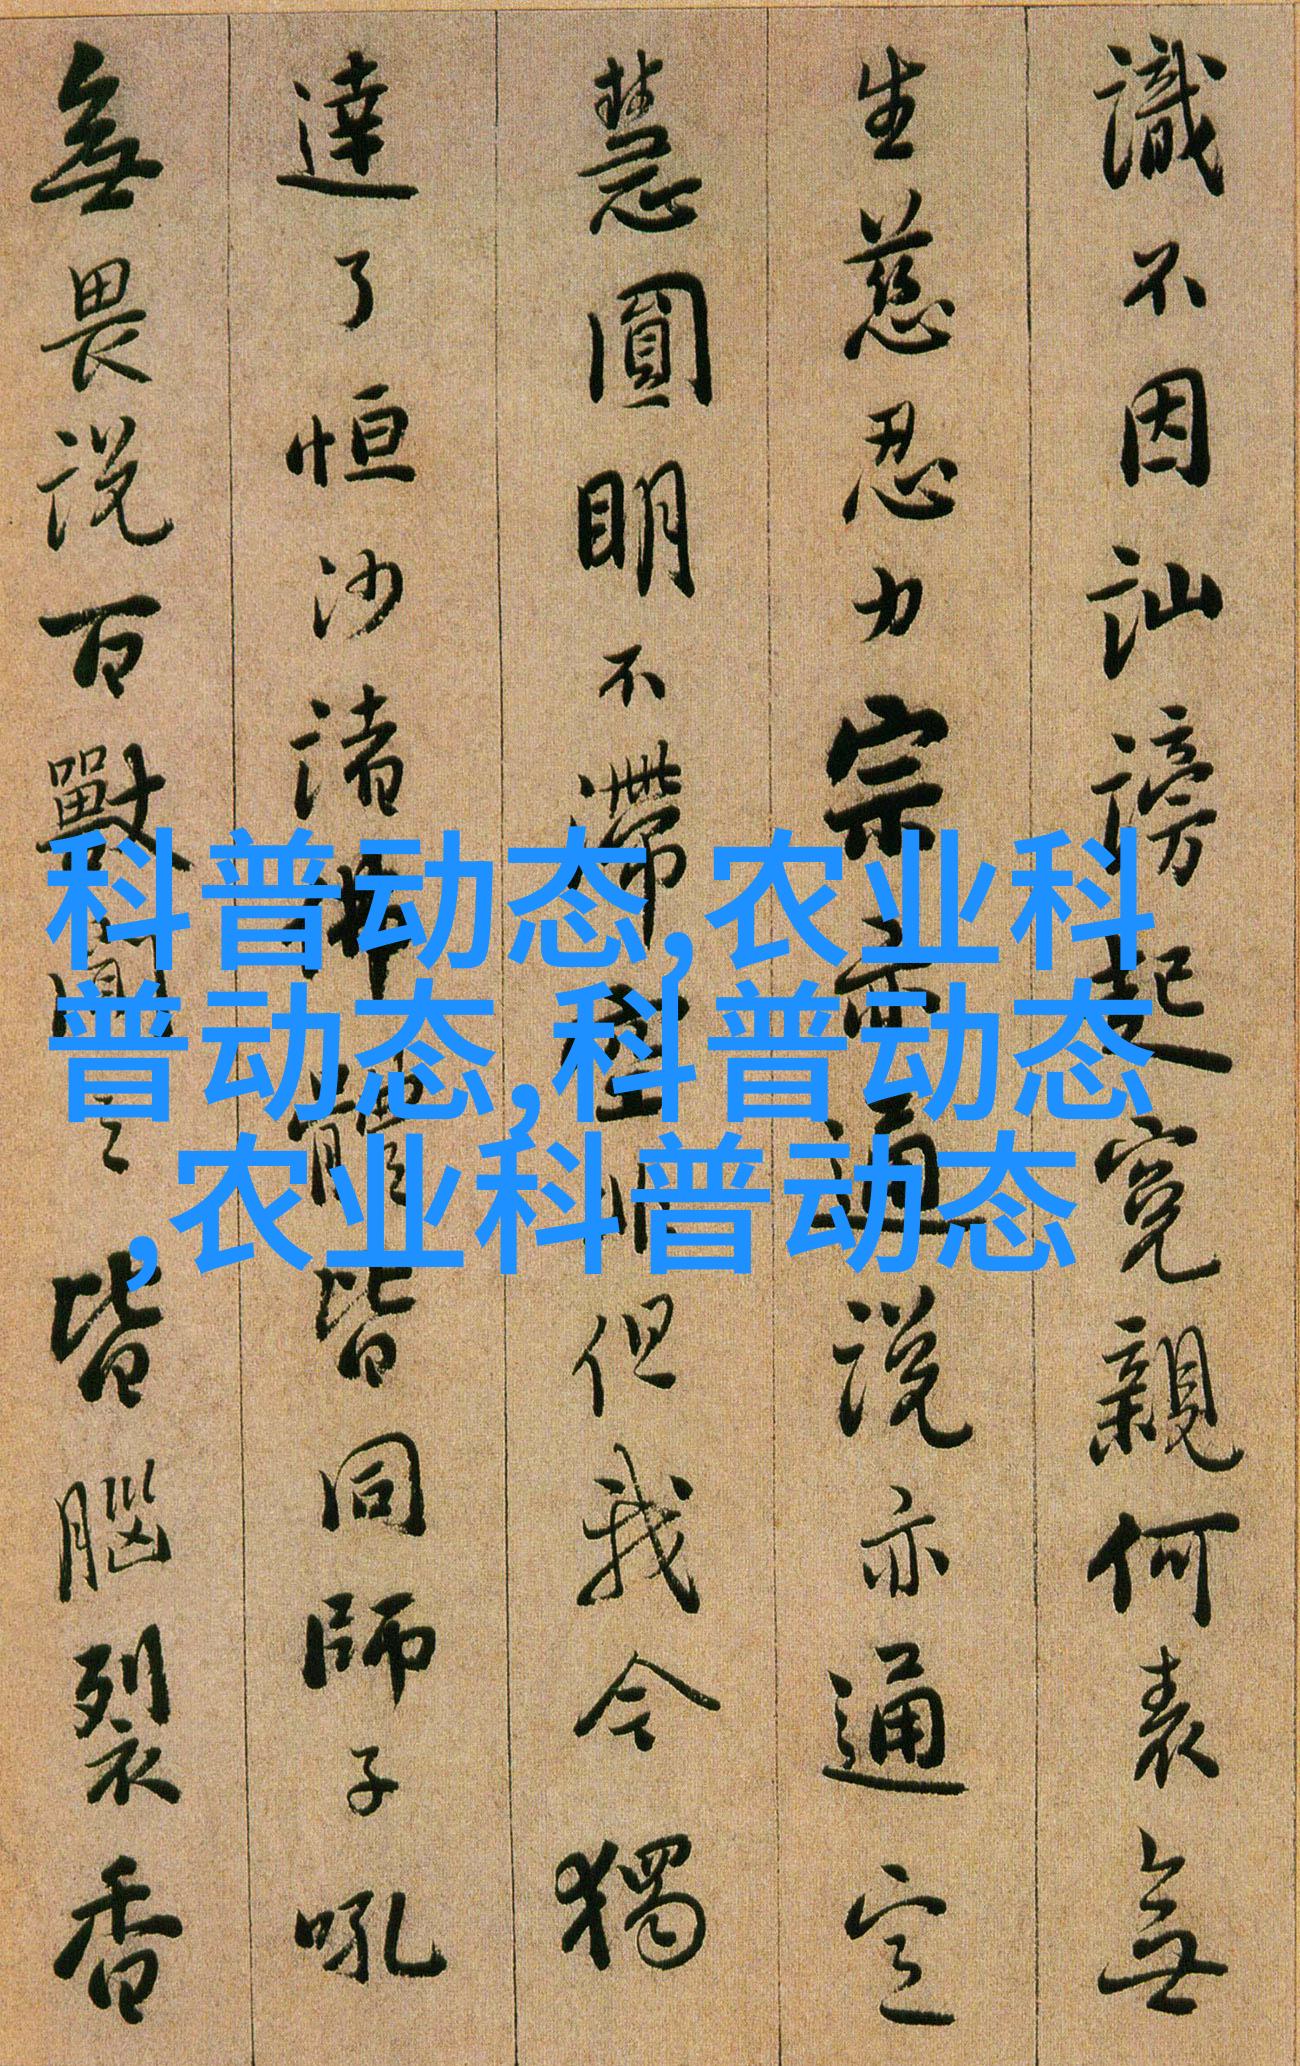 識不因訕謗起寃親何表無
生慈忍力宗亦通説亦通定
慧圓明不滯空但我今獨
達了恒沙諸體皆同師子吼
無畏説百獸聞之皆腦裂香
科普动态,农业科
普动态,科普动态
,农业科普动态